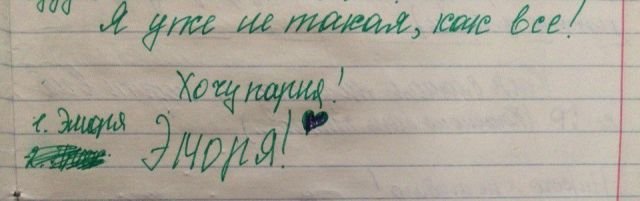 Я уже не такая, как все!
Хочу парня!
1. Эморя
2.
Эморя!